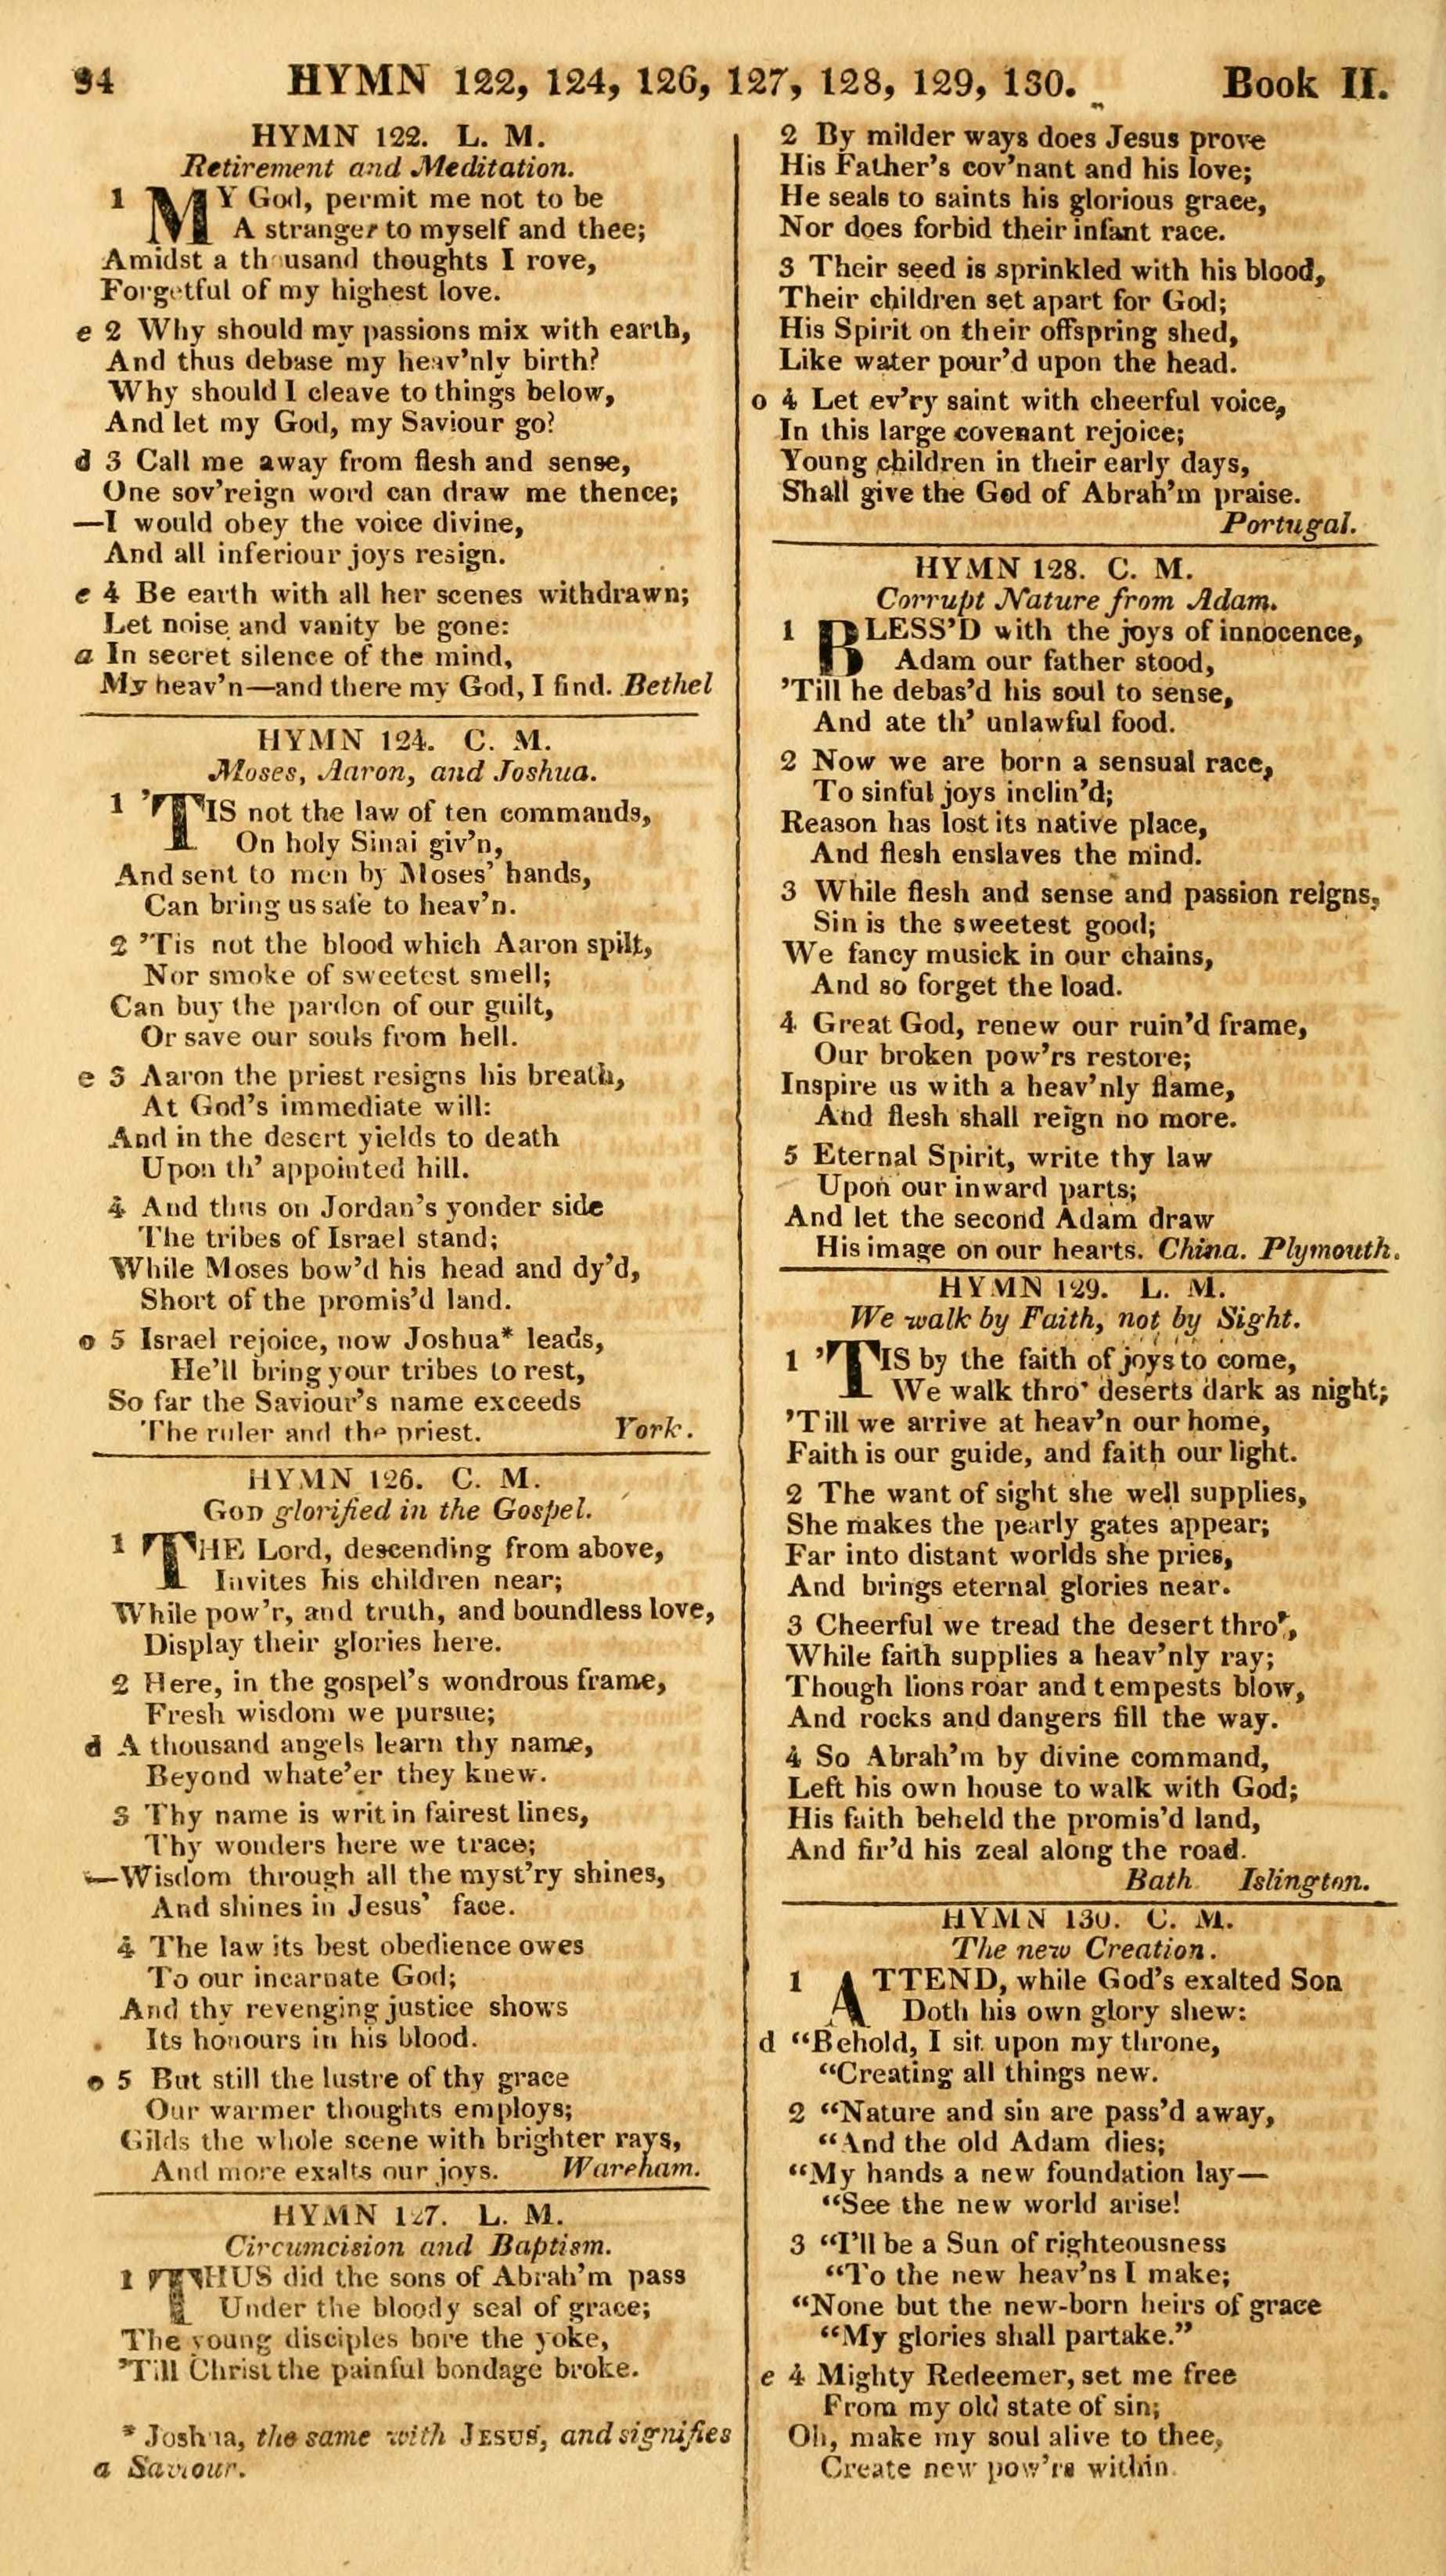 94 HYMN 122, 124, 126, 127, 128, 129, 130. Book II.
HYMN 122. L. M.
Retirement and Meditation.
1 MY God, permit me not to be
A stranger to myself and thee;
Amidst a thousand thoughts I rove,
Forgetful of my highest love.
e 2 Why should my passions mix with earth,
And thus debase my heav'nly birth?
Why should I cleave to things below,
And let my God, my Saviour go?
d 3 Call me away from flesh and sense,
One sov'reign word can draw me thence;
—I would obey the voice divine,
And all inferiour joys resign.
e 4 Be earth with all her scenes withdrawn;
Let noise and vanity be gone:
a In secret silence of the mind,
My heav'n—and there my God, I find. Bethel
HYMN 124. C. M.
Moses, Aaron, and Joshua.
1 'TIS not the law of ten commands,
On holy Sinai giv'n,
And sent to men by Moses' hands,
Can bring us safe to heav'n.
2 'Tis not the blood which Aaron spilt,
Nor smoke of sweetest smell;
Can buy the pardon of our guilt,
Or save our souls from hell.
e 3 Aaron the priest resigns his breath,
At God's immediate will:
And in the desert yields to death
Upon th' appointed hill.
4 And thus on Jordan's yonder side
The tribes of Israel stand;
While Moses bow'd his head and dy'd,
Short of the promis'd land.
o 5 Israel rejoice, now Joshua* leads,
He'll bring your tribes to rest,
So far the Saviour's name exceeds
The ruler and the priest. York.
HYMN 126. C. M.
GOD glorified in the Gospel.
1 THE Lord, descending from above,
Invites his children near;
While pow'r, and truth, and boundless love,
Display their glories here.
2 Here, in the gospel's wondrous frame,
Fresh wisdom we pursue;
d A thousand angels learn thy name,
Beyond whate'er they knew.
3 Thy name is writ in fairest lines,
Thy wonders here we trace;
—Wisdom through all the myst'ry shines,
And shines in Jesus' face.
4 The law its best obedience owes
To our incarnate God;
And thy revenging justice shows
Its honours in his blood.
o 5 But still the lustre of thy grace
Our warmer thoughts employs;
Gilds the whole scene with brighter rays,
And more exalts our joys. Wareham.
HYMN 127. L. M.
Circumcision and Baptism.
1 THUS did the sons of Abrah'm pass
Under the bloody seal of grace;
The young disciples bore the yoke,
'Till Christ the painful bondage broke.
* Joshua, the same with JESUS, and signifies
a Saviour.
2 By milder ways does Jesus prove
His Father's cov'nant and his love;
He seals to saints his glorious grace,
Nor does forbid their infant race.
3 Their seed is sprinkled with his blood,
Their children set apart for God;
His Spirit on their offspring shed,
Like water pour'd upon the head.
o 4 Let ev'ry saint with cheerful voice,
In this large covenant rejoice;
Young children in their early days,
Shall give the God of Abrah'm praise.
Portugal.
HYMN 128. C. M.
Corrupt Nature from Adam.
1 BLESS'D with the joys of innocence,
Adam our father stood,
'Till he debas'd his soul to sense,
And ate th' unlawful food.
2 Now we are born a sensual race,
To sinful joys inclin'd;
Reason has lost its native place,
And flesh enslaves the mind.
3 While flesh and sense and passion reigns,
Sin is the sweetest good;
We fancy musick in our chains,
And so forget the load.
4 Great God, renew our ruin'd frame,
Our broken pow'rs restore;
Inspire us with a heav'nly flame,
And flesh shall reign no more.
5 Eternal Spirit, write thy law
Upon our inward parts;
And let the second Adam draw
His image on our hearts. China. Plymouth.
HYMN 129. L. M.
We walk by Faith, not by Sight.
1 'TIS by the faith of joys to come,
We walk thro' deserts dark as night;
'Till we arrive at heav'n our home,
Faith is our guide, and faith our light.
2 The want of sight she well supplies,
She makes the pearly gates appear;
Far into distant worlds she pries,
And brings eternal glories near.
3 Cheerful we tread the desert thro',
While faith supplies a heav'nly ray;
Though lions roar and tempests blow,
And rocks and dangers fill the way.
4 So Abrah'm by divine command,
Left his own house to walk with God;
His faith beheld the promis'd land,
And fir'd his zeal along the road.
Bath Islington.
HYMN 130. C. M.
The new Creation.
1 ATTEND, while God's exalted Son
Doth his own glory shew:
d "Behold, I sit upon my throne,
"Creating all things new.
2 "Nature and sin are pass'd away,
"And the old Adam dies;
"My hands a new foundation lay—
"See the new world arise!
3 "I'll be a Sun of righteousness
"To the new heav'ns I make;
"None but the new-born heirs of grace
"My glories shall partake."
e 4 Mighty Redeemer, set me free
From my old state of sin;
Oh, make my soul alive to thee,
Create new pow'rs within